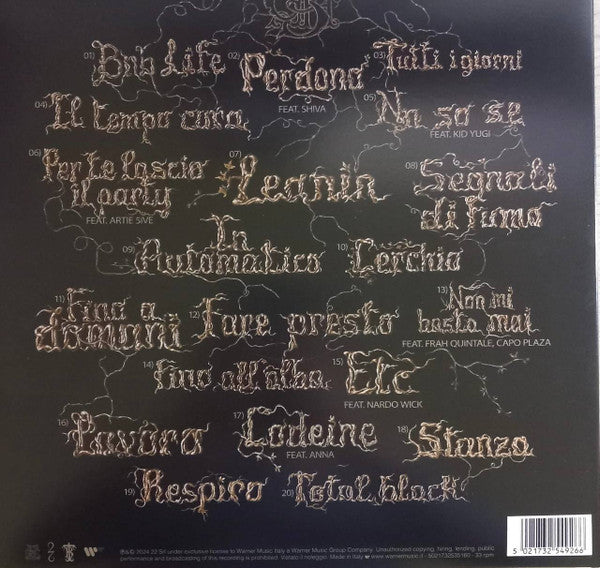 01) Bnb Life
02) Perdono
FEAT. SHIVA
03) Tutti i giorni
04) Il tempo cura
05) Nn so se
FEAT. KID YUGI
06) Per te lascio
il party
FEAT. ARTIE 5IVE
07) Leanin
08) Segnali
di fumo
09) In
Automatico
10) Cerchio
11) Fino a
domani
12) Fare presto
13) Non mi
basta mai
FEAT. FRAH QUINTALE, CAPO PLAZA
14) Fino all'alba
15) Etc
FEAT. NARDO WICK
16) Lavoro
17) Codeine
FEAT. ANNA
18) Stanza
19) Respiro
20) Total black
℗&© 2024 22 Srl under exclusive license to Warner Music Italy a Warner Music Group Company. Unauthorized copying, hiring, lending, public
performance and broadcasting of this recording is prohibited. Vietato il noleggio. Made in Italy www.warnermusic.it - 5021732535160 - 33 rpm
5 021732 549266